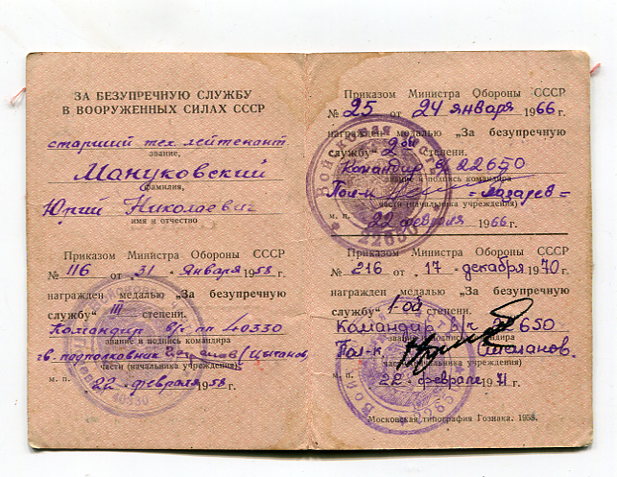 ЗА БЕЗУПРЕЧНУЮ СЛУЖБУ
В ВООРУЖЕННЫХ СИЛАХ СССР
старший тех. лейтенант
звание,
Мануковский
фамилия,
Юрий Николаевич
имя и отчество
Приказом Министра Обороны СССР
№ 116 от 31 января 1958 г.
награжден медалью „За безупречную
службу" III степени.
Командир в/ч пп 40330
звание и подпись командира
гв. подполковник (Цыганов)
части (начальника учреждения)
м. п. 22 февраля 1958 г.
Приказом Министра Обороны СССР
№ 25 от 24 января 1966 г.
награжден медалью „За безупречную
службу" 2ой степени.
Командир в/ч 22650
звание и подпись командира
Пол-к -Лазарев=
части (начальника учреждения)
м. п. 22 февраля 1966 г.
Войсковая часть
22650
Приказом Министра Обороны СССР
№ 216 от 17 декабря 1970 г.
награжден медалью „За безупречную
службу" 1ой степени.
Командир в/ч 22650
звание и подпись командира
Пол-к Стоманов.
части (начальника учреждения)
м. п. 22 февраля 1971 г.
40330
2265
Московская типография Гознака. 1958.